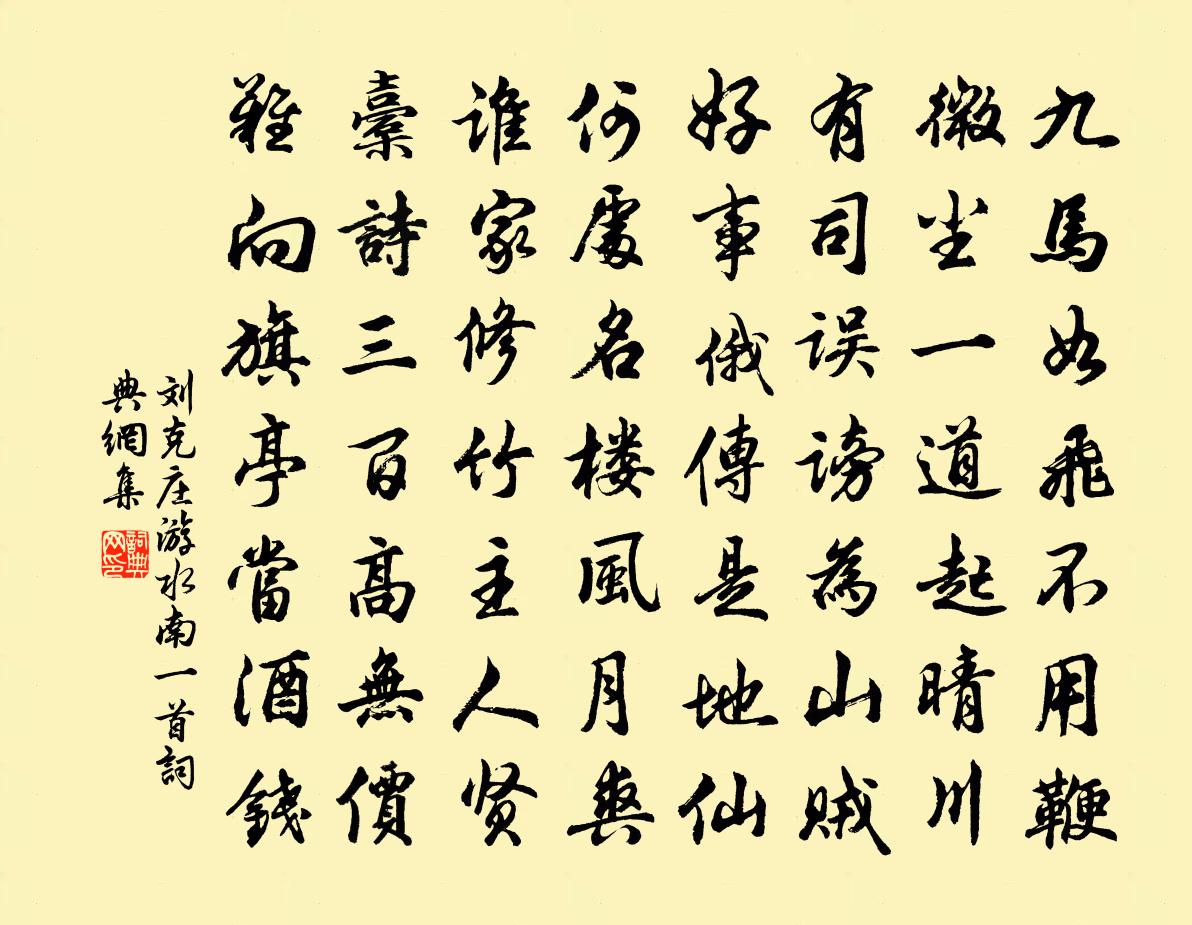 九馬如飛不用鞭
微尘一道起晴川
有司误谤為山賊
好事俄傳是地仙
何處名楼風月爽
谁家修竹主人贤
橐詩三百高無價
难向旗亭當酒錢
刘克庄游水南一首詞
典網集
詞典
网印